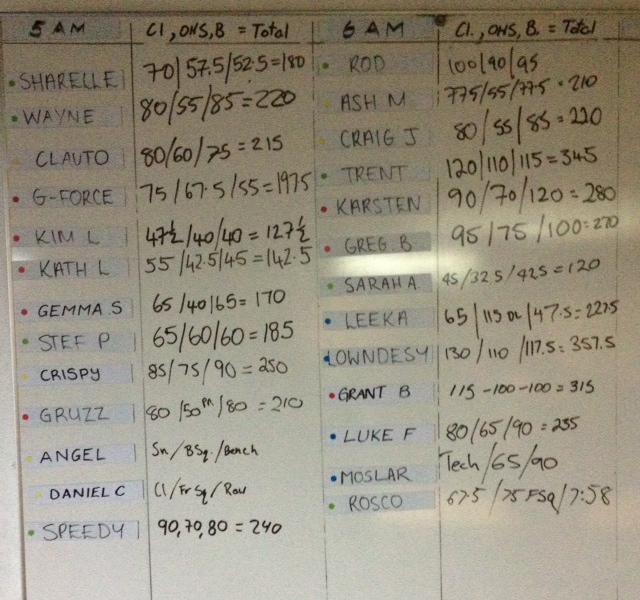 5 AM Cl, OHS, B = Total
SHARELLE 70/57.5/52.5=180
WAYNE 80/55/85=220
CLAUTO 80/60/75=215
G-FORCE 75/67.5/55=197.5
KIM L 47½/40/40=127½
KATH L 55/42.5/45=142.5
GEMMA.S 65/40/65=170
STEF P 65/60/60=185
CRISPY 85/75/90=250
GRUZZ 80/50m/80=210
ANGEL Sn/BSq./Bench
DANIEL C Cl/FrSq/Row
SPEEDY 90,70,80=240
6 AM Cl., OHS, B. = Total
ROD 100/90/95
ASH M 77.5/55/77.5=210
CRAIG J 80/55/85=220
TRENT 120/110/115=345
KARSTEN 90/70/120=280
GREG B 95/75/100=270
SARAH A 45/32.5/42.5=120
LEEKA 65/115 /47.5=227.5
LOWNDESY 130/110/117.5=357.5
GRANT B 115-100-100=315
LUKE F 80/65/90=235
MOSLAR Tech/65/90
ROSCO 67.5/75FSq/7:58